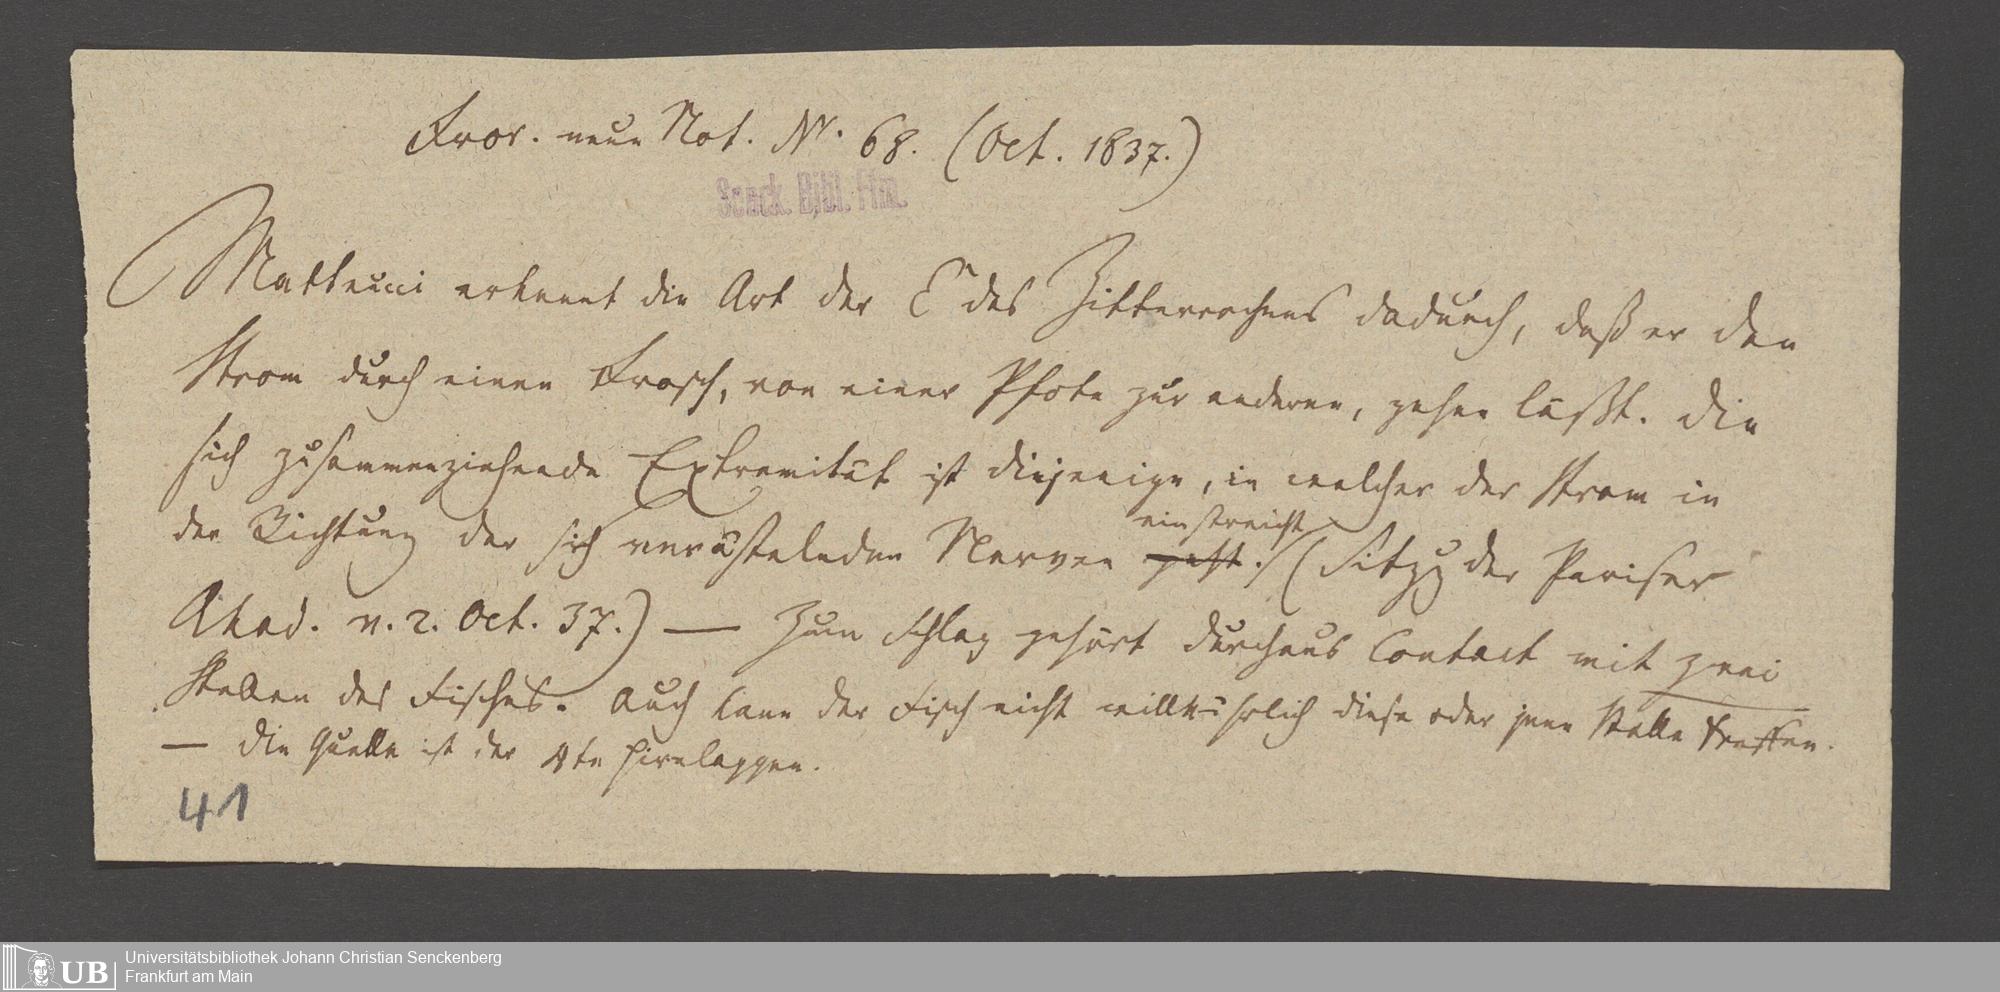 Fror. neue Not. Nr. 68. (Oct. 1837.)
Senck. Bibl. Ffm.
Matteucci erkennt die Art der E des Zitterrochens dadurch, daß er den
Strom durch einen Frosch, von einer Pfote zur anderen, gehen läßt. Die
sich zusammenziehende Extremität ist diejenige, in welcher der Strom in
der Richtung der sich verästelnden Nerven geht. einstreicht (Sitzg der Pariser
Akad. v. 2. Oct. 37.) — Zum Schlag gehört durchaus Contact mit zwei
Stellen des Fisches. Auch kann der Fisch nicht willkührlich diese oder jene Stelle treffen.
— Die Quelle ist der 4te Hirnlappen.
41
UB
Universitätsbibliothek Johann Christian Senckenberg
Frankfurt am Main